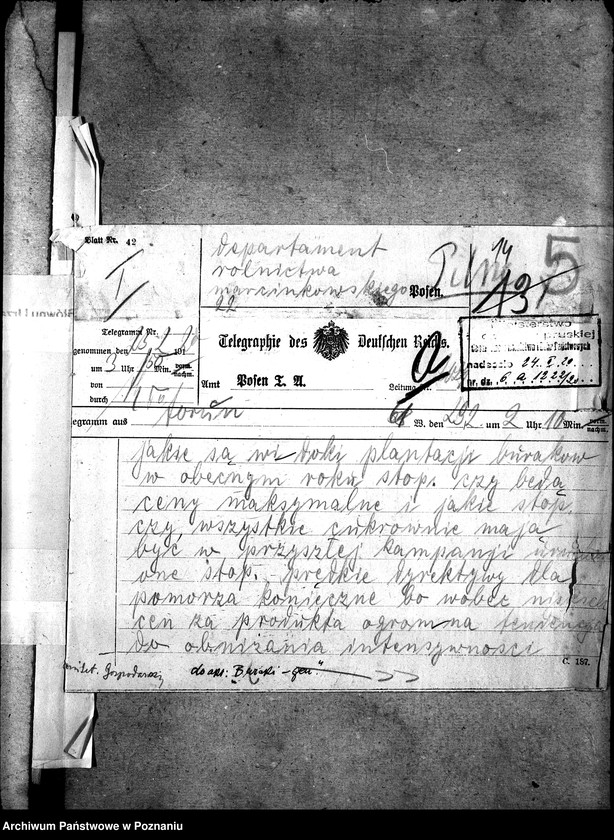 Blatt Nr. 42
I
departament
rolnictwa
marcinkowskiego Posen.
22
Pilne
14
13
5
Telegramm Nr.
genommen den 15 2 1920
um 3 Uhr 50 Min. vorm. nachm.
von
durch
Telegraphie des Deutschen Reichs.
Amt Posen T. A. Leitung Nr.
Ministerstwo
b. dzielnicy pruskiej
nadeszło 24. II. 20.
nr. dz. 6. a. 1222/20
Telegramm aus toruń W. den 292 um 2 Uhr 10 Min. vorm. nachm.
jakie są widoky plantacji burakow
w obecnym roku stop. czy będą
ceny maksymalne i jakie stop.
czy wszystkie cukrownie mają
być w przyszłej kampanji
one stop. prędkie dyrektywy dla
pomorza konięczne bo wobec
cen za produkta ogromna tendencja
do obniżania intensywności
C. 187.
Gospodarczy
do akt: Buraki – gen."
Archiwum Państwowe w Poznaniu